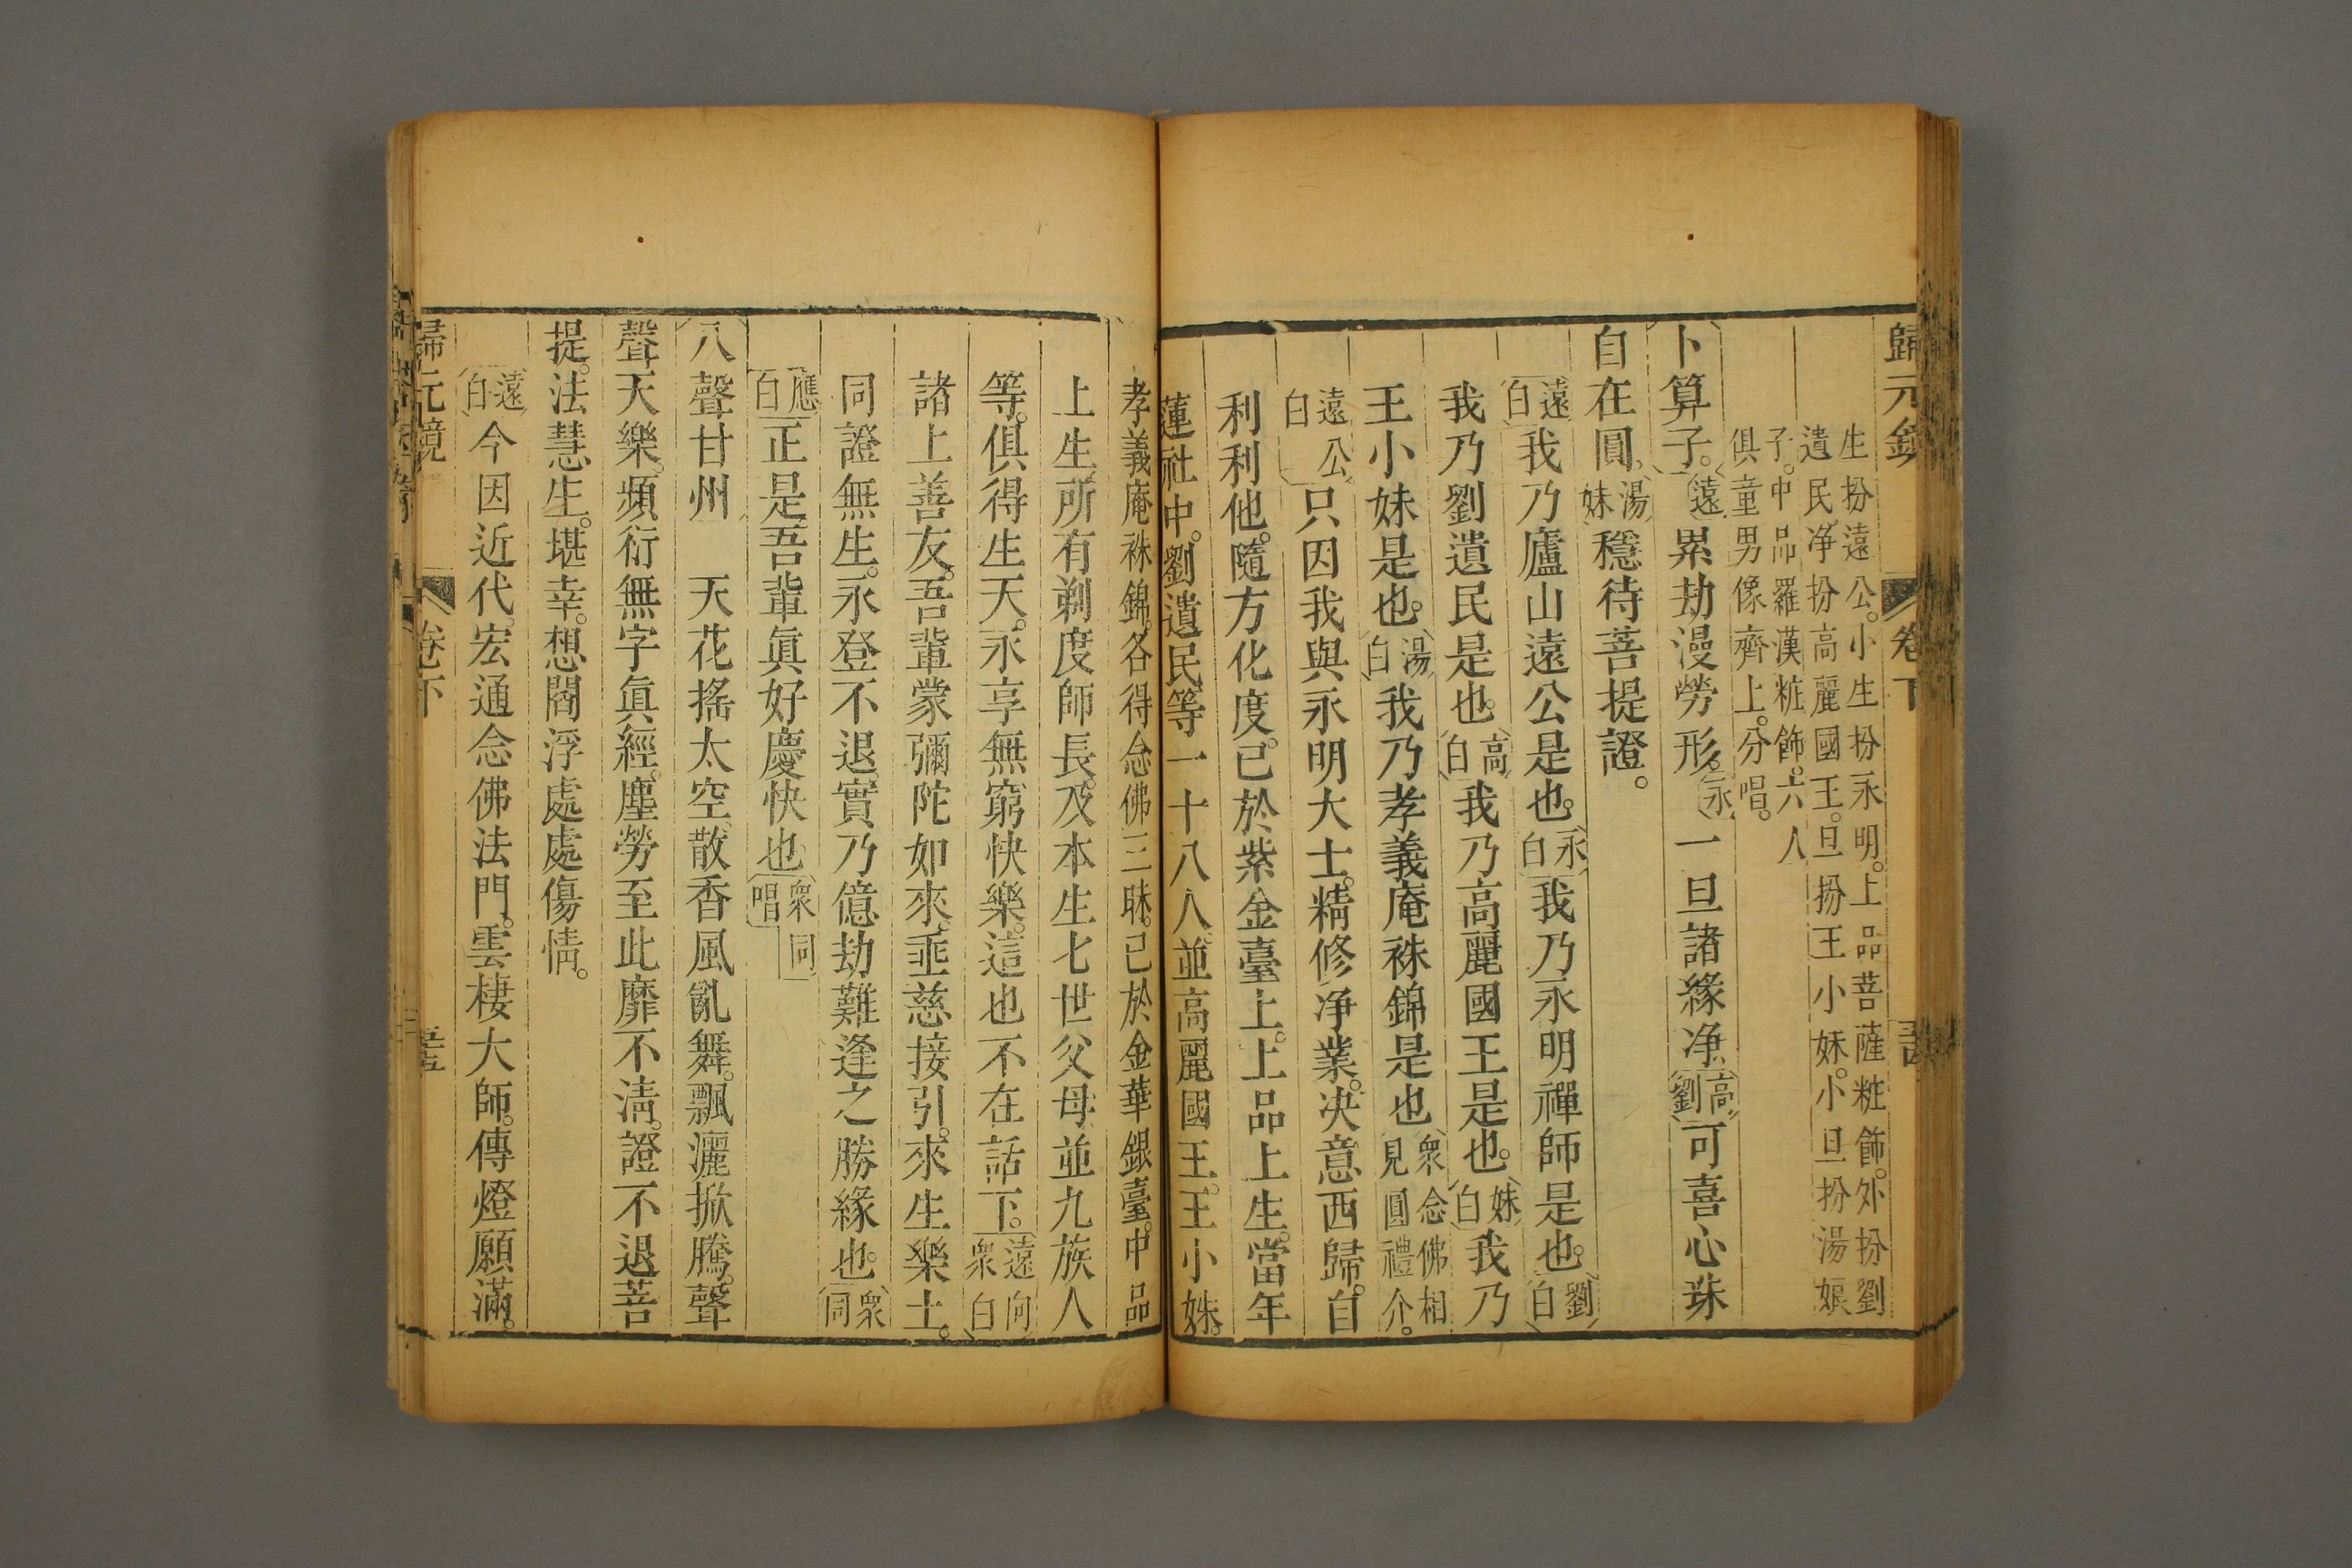 歸元鏡 卷下
生扮遠公。小生扮永明。上品菩薩粧飾。外扮劉
遺民、净扮高麗國王。旦扮王小妹。小旦扮湯娘
子。中品羅漢粧飾。六人
俱童男像齊上。分唱。
卜算子。遠累劫漫勞形。永一旦諸緣净、高劉可喜心珠
自在圓、湯妹穩待菩提證。
遠白我乃廬山遠公是也。永白我乃永明禪師是也。劉白
我乃劉遺民是也。高白我乃高麗國王是也。妹白我乃
王小妹是也。湯白我乃孝義庵袾錦是也衆念佛相見圓禮介。
遠公白只因我與永明大士。精修净業。决意西歸。自
利利他。隨方化度。已於紫金臺上。上品上生。當年
蓮社中。劉遺民等一十八人、並高麗國王。王小妹。
孝義庵袾錦。各得念佛三昧。已於金華銀臺。中品
上生。所有剃度師長。及本生七世父母、並九族人
等。俱得生天。永享無窮快樂。這也不在話下。遠向衆白
諸上善友。吾輩蒙彌陀如來、垂慈接引。來生樂土。
同證無生。永登不退、實乃億劫難逢之勝緣也。衆同
應白正是吾輩眞好慶快也衆同唱
八聲甘州 天花搖太空、散香風亂舞。飄灑掀騰。聲
聲天樂。頻衍無字眞經。塵勞至此靡不淸。證不退菩
提。法慧生。堪幸。想閻浮處處傷情。
遠白今因近代。宏通念佛法門。雲棲大師。傳燈願滿。
歸元鏡 卷下